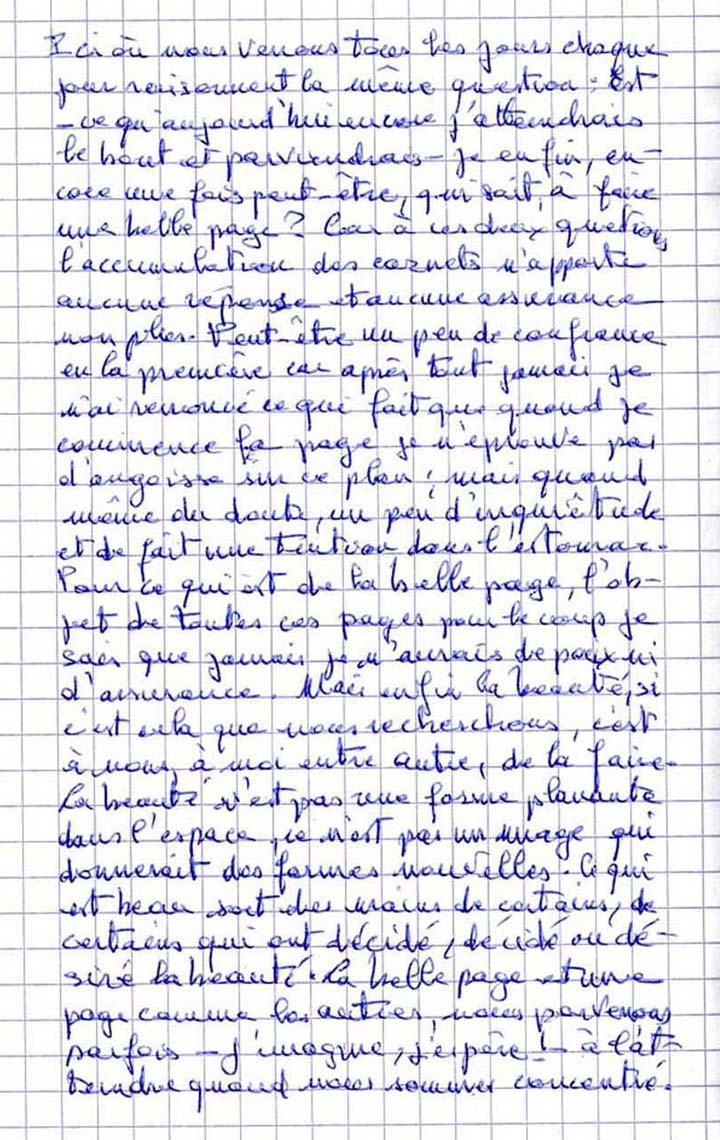 Ici où nous venons tous les jours chaque
jour raisonnent la même question : Est
-ce qu'aujourd'hui encore j'atteindrais
le bout et parviendrais-je enfin, en-
core une fois peut-être, qui sait, à faire
une belle page ? Car à ces deux questions
l'accumulation des carnets n'apporte
aucune réponse et aucune assurance
non plus. Peut-être un peu de confiance
en la première car après tout jamais je
n'ai renoncé ce qui fait que quand je
commence la page je n'éprouve pas
d'angoisse sur ce plan ; mais quand
même du doute, un peu d'inquiétude
et de fait une tention dans l'estomac.
Pour ce qui est de la belle page, l'ob-
jet de toutes ces pages pour le coup je
sais que jamais je n'aurais de paix ni
d'assurance. Mais enfin la beauté, si
c'est cela que nous recherchons, c'est
à nous, à moi entre autre, de la faire.
La beauté n'est pas une forme planante
dans l'espace, ce n'est pas un nuage qui
donnerait des formes nouvelles. Ce qui
est beau sort des mains de certains, de
certains qui ont décidé, décidé ou dé-
siré la beauté. La belle page est une
page comme les autres, nous parvenons
parfois - j'imagine, j'espère ! - à l'at-
teindre quand nous sommes concentré.